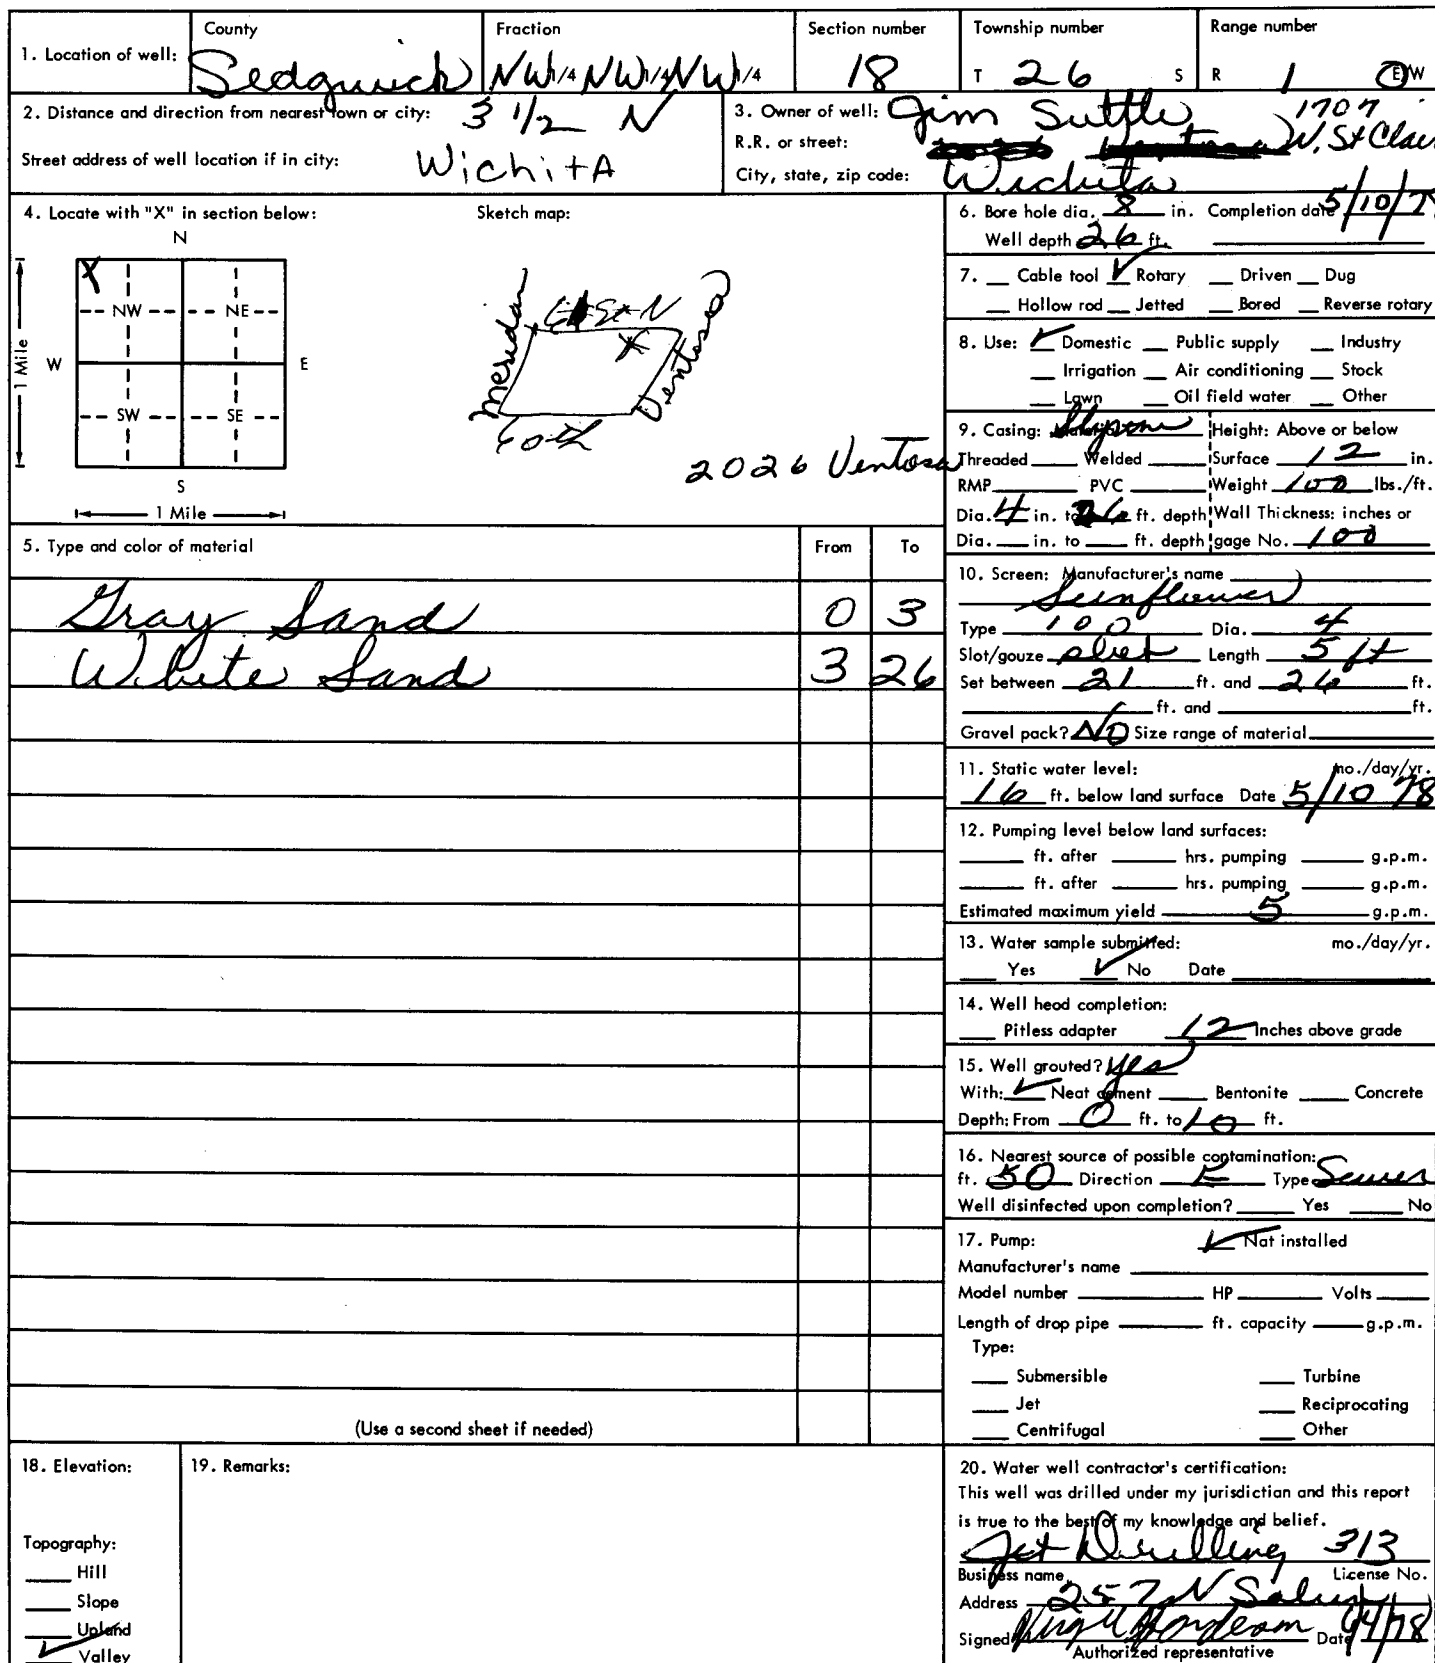 1. Location of well: County Sedgwick Fraction NW 1/4 NW 1/4 NW 1/4 Section number 18 Township number T 26 S Range number R 1 E/W
2. Distance and direction from nearest town or city: 3 1/2 N
Street address of well location if in city: Wichita
3. Owner of well: Jim Suttle
R.R. or street: 1707 W. St Clair
City, state, zip code: Wichita
4. Locate with "X" in section below:
N
X
NW NE
W E
SW SE
S
1 Mile
1 Mile
Sketch map:
Meridan
X
Ventosa
60th
2026 Ventosa
5. Type and color of material From To
Gray Sand 0 3
White Sand 3 26
(Use a second sheet if needed)
6. Bore hole dia. 8 in. Completion date 5/10/
Well depth 26 ft.
7. Cable tool ✓ Rotary Driven Dug
Hollow rod Jetted Bored Reverse rotary
8. Use: ✓ Domestic Public supply Industry
Irrigation Air conditioning Stock
Lawn Oil field water Other
9. Casing: Material Height: Above or below
Threaded Welded Surface 12 in.
RMP PVC Weight 100 lbs./ft.
Dia. 4 in. to 26 ft. depth Wall Thickness: inches or
Dia. in. to ft. depth gage No. 100
10. Screen: Manufacturer's name
Sunflower
Type 100 Dia. 4
Slot/gouze slot Length 5 ft
Set between 21 ft. and 26 ft.
ft. and ft.
Gravel pack? No Size range of material
11. Static water level: mo./day/yr.
16 ft. below land surface Date 5/10 78
12. Pumping level below land surfaces:
ft. after hrs. pumping g.p.m.
ft. after hrs. pumping g.p.m.
Estimated maximum yield 5 g.p.m.
13. Water sample submitted: mo./day/yr.
Yes ✓ No Date
14. Well head completion:
Pitless adapter 12 Inches above grade
15. Well grouted? Yes
With: ✓ Neat cement Bentonite Concrete
Depth: From 0 ft. to 10 ft.
16. Nearest source of possible contamination:
ft. 50 Direction E Type Sewer
Well disinfected upon completion? Yes No
17. Pump: ✓ Not installed
Manufacturer's name
Model number HP Volts
Length of drop pipe ft. capacity g.p.m.
Type:
Submersible Turbine
Jet Reciprocating
Centrifugal Other
18. Elevation:
Topography:
Hill
Slope
Upland
✓ Valley
19. Remarks:
20. Water well contractor's certification:
This well was drilled under my jurisdiction and this report
is true to the best of my knowledge and belief.
Jet Drilling 313
Business name License No.
Address 257 N
Signed Date
Authorized representative